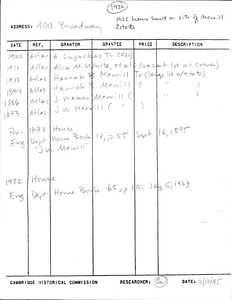 1922
ADDRESS: 400 Broadway
1922 house built on site of Merrill Estate
DATE REF. GRANTOR GRANTEE PRICE DESCRIPTION
1930 Atlas A.
1916 Atlas Alice M. White, et al (vacant lot at corner)
1903 Atlas Hannah B. Merrill Tr (large lot w/estate)
1894 Atlas Hannah B. Merrill ( " )
1886 Atlas J. Warren Merrill ( " )
1873 Atlas J. W. Merrill ( " )
Pre- 1873 House
Eng Dept House Book 13, p 55 Sept. 16, 1895
"J.W. Merrill"
1922 House
Eng Dept House Book 65, p 101 5, 1923
CAMBRIDGE HISTORICAL COMMISSION RESEARCHER: DATE: